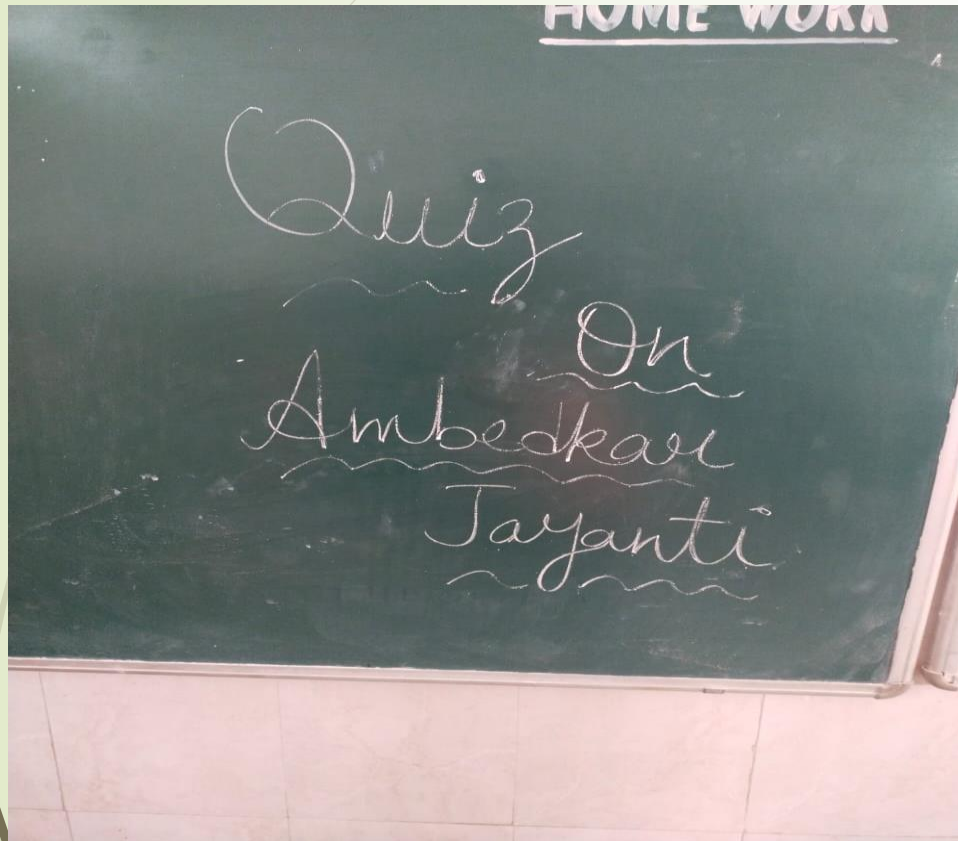 HOME WORK
Quiz
On
Ambedkar
Jayanti